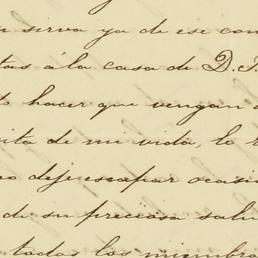 sirva ya de ese con
tas á la casa de D. J.
hacer que vengan
ita de mi vida, lo
deje escapar ocasi
de su preciosa salu
todos los miembro